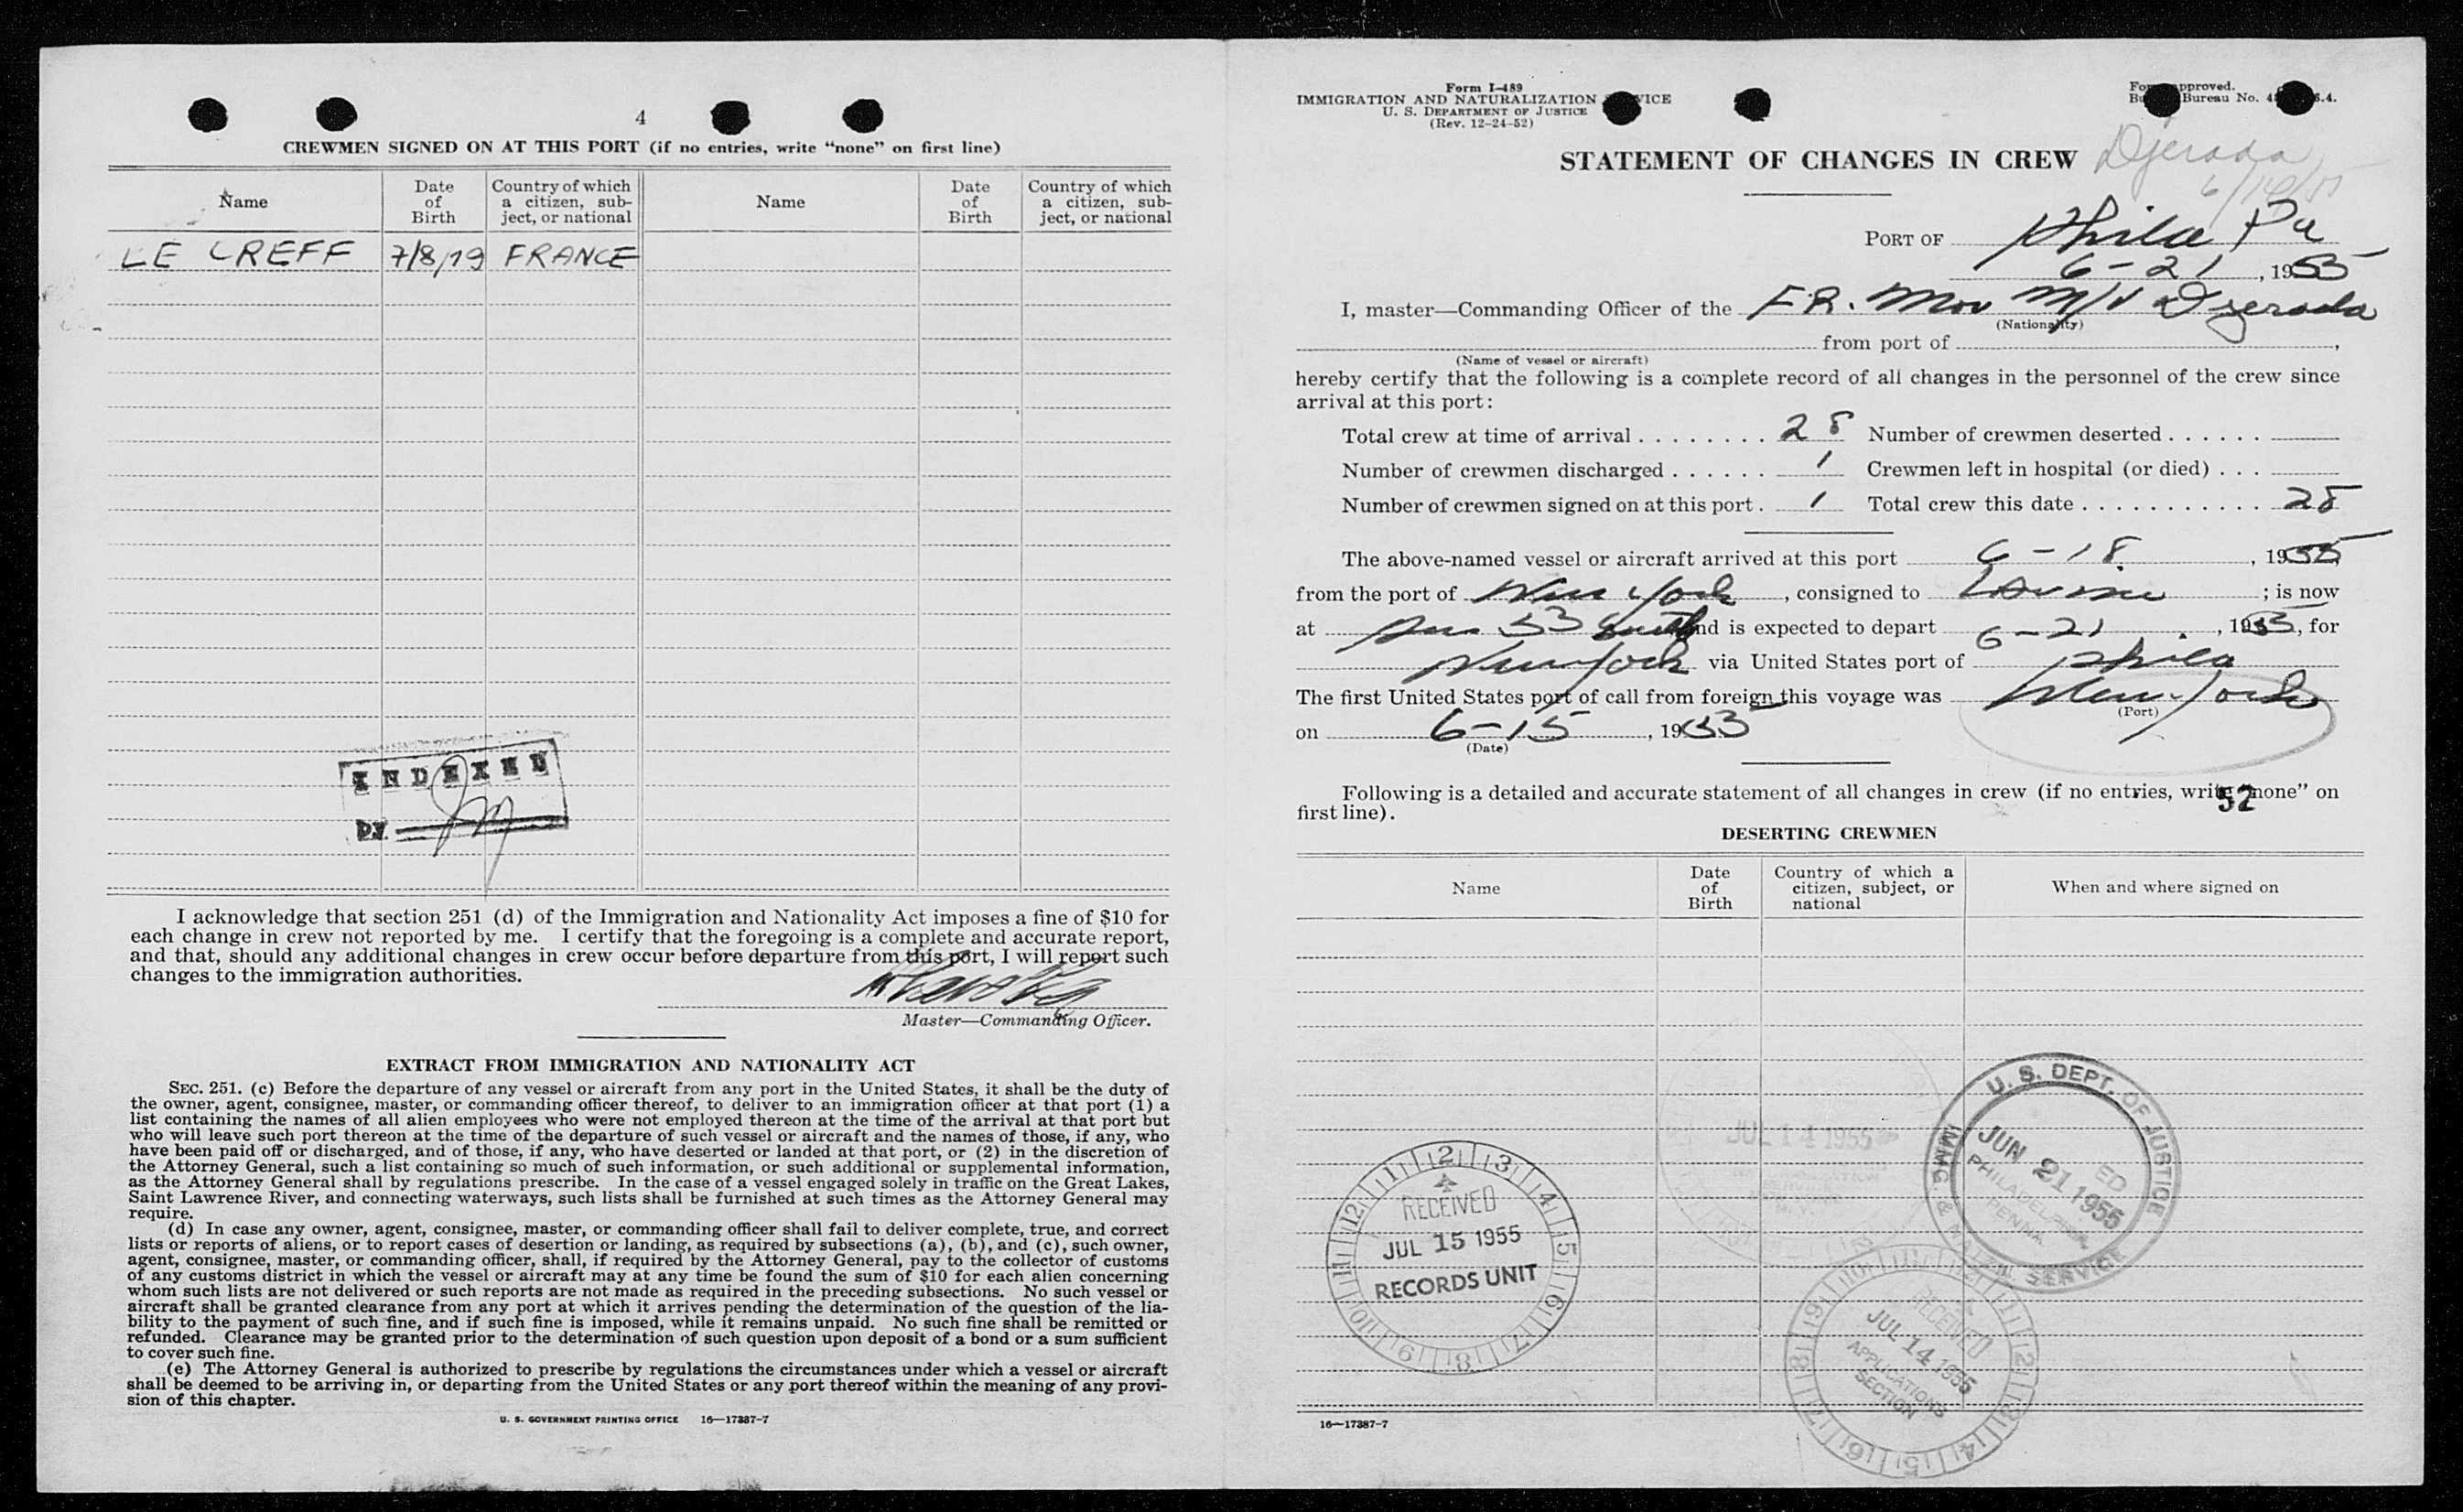 4
CREWMEN SIGNED ON AT THIS PORT (if no entries, write “none” on first line)
Name
Date of Birth
Country of which a citizen, sub-ject, or national
Name
Date of Birth
Country of which a citizen, sub-ject, or national
LE CREFF 7/8/19 FRANCE
INDEXED
BY
I acknowledge that section 251 (d) of the Immigration and Nationality Act imposes a fine of $10 for
each change in crew not reported by me. I certify that the foregoing is a complete and accurate report,
and that, should any additional changes in crew occur before departure from this port, I will report such
changes to the immigration authorities.
Master—Commanding Officer.
EXTRACT FROM IMMIGRATION AND NATIONALITY ACT
SEC. 251. (c) Before the departure of any vessel or aircraft from any port in the United States, it shall be the duty of
the owner, agent, consignee, master, or commanding officer thereof, to deliver to an immigration officer at that port (1) a
list containing the names of all alien employees who were not employed thereon at the time of the arrival at that port but
who will leave such port thereon at the time of the departure of such vessel or aircraft and the names of those, if any, who
have been paid off or discharged, and of those, if any, who have deserted or landed at that port, or (2) in the discretion of
the Attorney General, such a list containing so much of such information, or such additional or supplemental information,
as the Attorney General shall by regulations prescribe. In the case of a vessel engaged solely in traffic on the Great Lakes,
Saint Lawrence River, and connecting waterways, such lists shall be furnished at such times as the Attorney General may
require.
(d) In case any owner, agent, consignee, master, or commanding officer shall fail to deliver complete, true, and correct
lists or reports of aliens, or to report cases of desertion or landing, as required by subsections (a), (b), and (c), such owner,
agent, consignee, master, or commanding officer, shall, if required by the Attorney General, pay to the collector of customs
of any customs district in which the vessel or aircraft may at any time be found the sum of $10 for each alien concerning
whom such lists are not delivered or such reports are not made as required in the preceding subsections. No such vessel or
aircraft shall be granted clearance from any port at which it arrives pending the determination of the question of the lia-
bility to the payment of such fine, and if such fine is imposed, while it remains unpaid. No such fine shall be remitted or
refunded. Clearance may be granted prior to the determination of such question upon deposit of a bond or a sum sufficient
to cover such fine.
(e) The Attorney General is authorized to prescribe by regulations the circumstances under which a vessel or aircraft
shall be deemed to be arriving in, or departing from the United States or any port thereof within the meaning of any provi-
sion of this chapter.
U. S. GOVERNMENT PRINTING OFFICE 16—17387-7
Form I-489
IMMIGRATION AND NATURALIZATION
U. S. DEPARTMENT OF JUSTICE
(Rev. 12-24-52)
approved.
Bureau No.
STATEMENT OF CHANGES IN CREW Djerada
PORT OF Phila Pa
6-21, 1955
I, master—Commanding Officer of the FR. Mov M/V Djerada
(Nationality)
from port of
(Name of vessel or aircraft)
hereby certify that the following is a complete record of all changes in the personnel of the crew since
arrival at this port:
Total crew at time of arrival 28 Number of crewmen deserted
Number of crewmen discharged 1 Crewmen left in hospital (or died)
Number of crewmen signed on at this port 1 Total crew this date 28
The above-named vessel or aircraft arrived at this port 6-18, 1955
from the port of New York, consigned to ; is now
at 53 South and is expected to depart 6-21, 1955, for
New York via United States port of Phila
The first United States port of call from foreign this voyage was New York
(Port)
on 6-15, 1955
(Date)
Following is a detailed and accurate statement of all changes in crew (if no entries, write “none” on
first line).
52
DESERTING CREWMEN
Name
Date of Birth
Country of which a citizen, subject, or national
When and where signed on
JUL 14 1955
U. S. DEPT. OF JUSTICE
JUN 21 1955
PHILADELPHIA
PENNA.
IMMG. & NATZN. SERVICE
RECEIVED
JUL 15 1955
RECORDS UNIT
RECEIVED
JUL 14 1955
APPLICATIONS
SECTION
16—17387-7